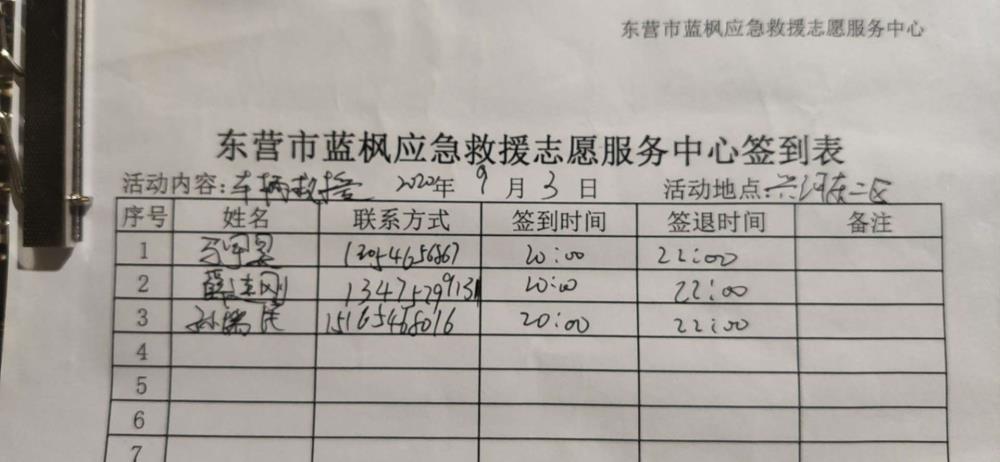 东营市蓝枫应急救援志愿服务中心
东营市蓝枫应急救援志愿服务中心签到表
活动内容:车辆救援 2020年 9 月 3 日 活动地点:
序号 姓名 联系方式 签到时间 签退时间 备注
1 20:00 22:00
2 20:00 22:00
3 孙 15165468016 20:00 22:00
4
5
6
7